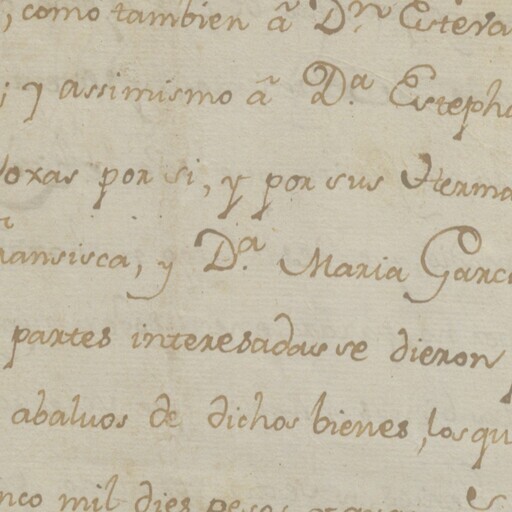 , como tambien â Dⁿ Esteva
; y assimismo â Dª Estepha
por si, y por sus Herma
ransisca, y Dª Maria Garc
partes interesadas se dieron
abaluos de dichos bienes, los qu
nco mil dies pesos